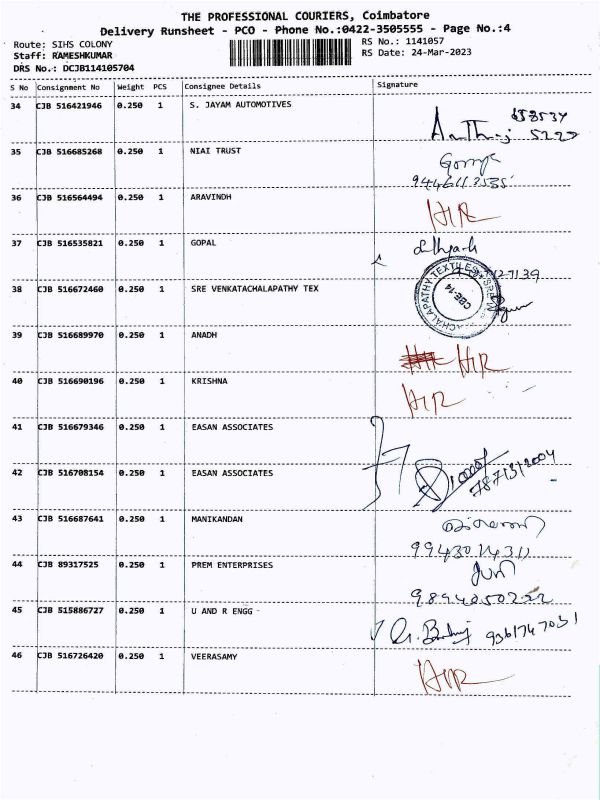 THE PROFESSIONAL COURIERS, Coimbatore
Delivery Runsheet - PCO - Phone No.:0422-3505555 - Page No.:4
Route: SIHS COLONY
Staff: RAMESHKUMAR
DRS No.: DCJB114105704
RS No.: 1141057
RS Date: 24-Mar-2023
S No Consignment No Weight PCS Consignee Details Signature
34 CJB 516421946 0.250 1 S. JAYAM AUTOMOTIVES
35 CJB 516685268 0.250 1 NIAI TRUST
36 CJB 516564494 0.250 1 ARAVINDH HIR
37 CJB 516535821 0.250 1 GOPAL
38 CJB 516672460 0.250 1 SRE VENKATACHALAPATHY TEX CBE-14
39 CJB 516689970 0.250 1 ANADH HIR
40 CJB 516690196 0.250 1 KRISHNA HIR
41 CJB 516679346 0.250 1 EASAN ASSOCIATES
42 CJB 516708154 0.250 1 EASAN ASSOCIATES
43 CJB 516687641 0.250 1 MANIKANDAN 9943014311
44 CJB 89317525 0.250 1 PREM ENTERPRISES 9894050222
45 CJB 515886727 0.250 1 U AND R ENGG 9361747031
46 CJB 516726420 0.250 1 VEERASAMY HIR